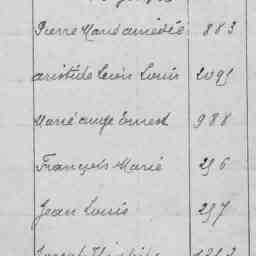 Pierre Marie amédée 883
aristide Léon Louis 2095
Marie ange Ernest 988
François Marie 256
Jean Louis 257
Joseph